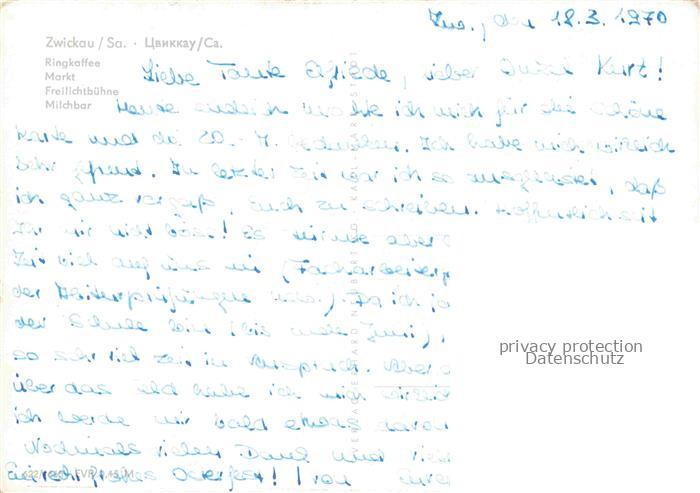 Zwickau / Sa. · Цвиккау/Са.
Ringkaffee
Markt
Freilichtbühne
Milchbar
Zw., den 18.3.1970
Liebe Tante Elfriede, lieber Onkel Kurt!
Heute endlich möchte ich mich für die schöne
Karte und die 20.- M. bedanken. Ich habe mich wirklich
sehr gefreut. In letzter Zeit war ich so ausgelastet, daß
ich ganz vergaß, Euch zu schreiben. Hoffentlich seit
Ihr mir nicht böse! Es stürmte aber
Zeit viel auf uns ein (Facharbeiterp
der Weiterprüfungen usw.). Da ich ja
der Schule bin (bis Ende Juni),
so sehr viel Zeit in Anspruch. Aber
über das Geld habe ich mich wirklich
ich werde mir bald etwas davon
Nochmals vielen Dank und viele
frohes Osterfest! von Eurer
privacy protection
Datenschutz